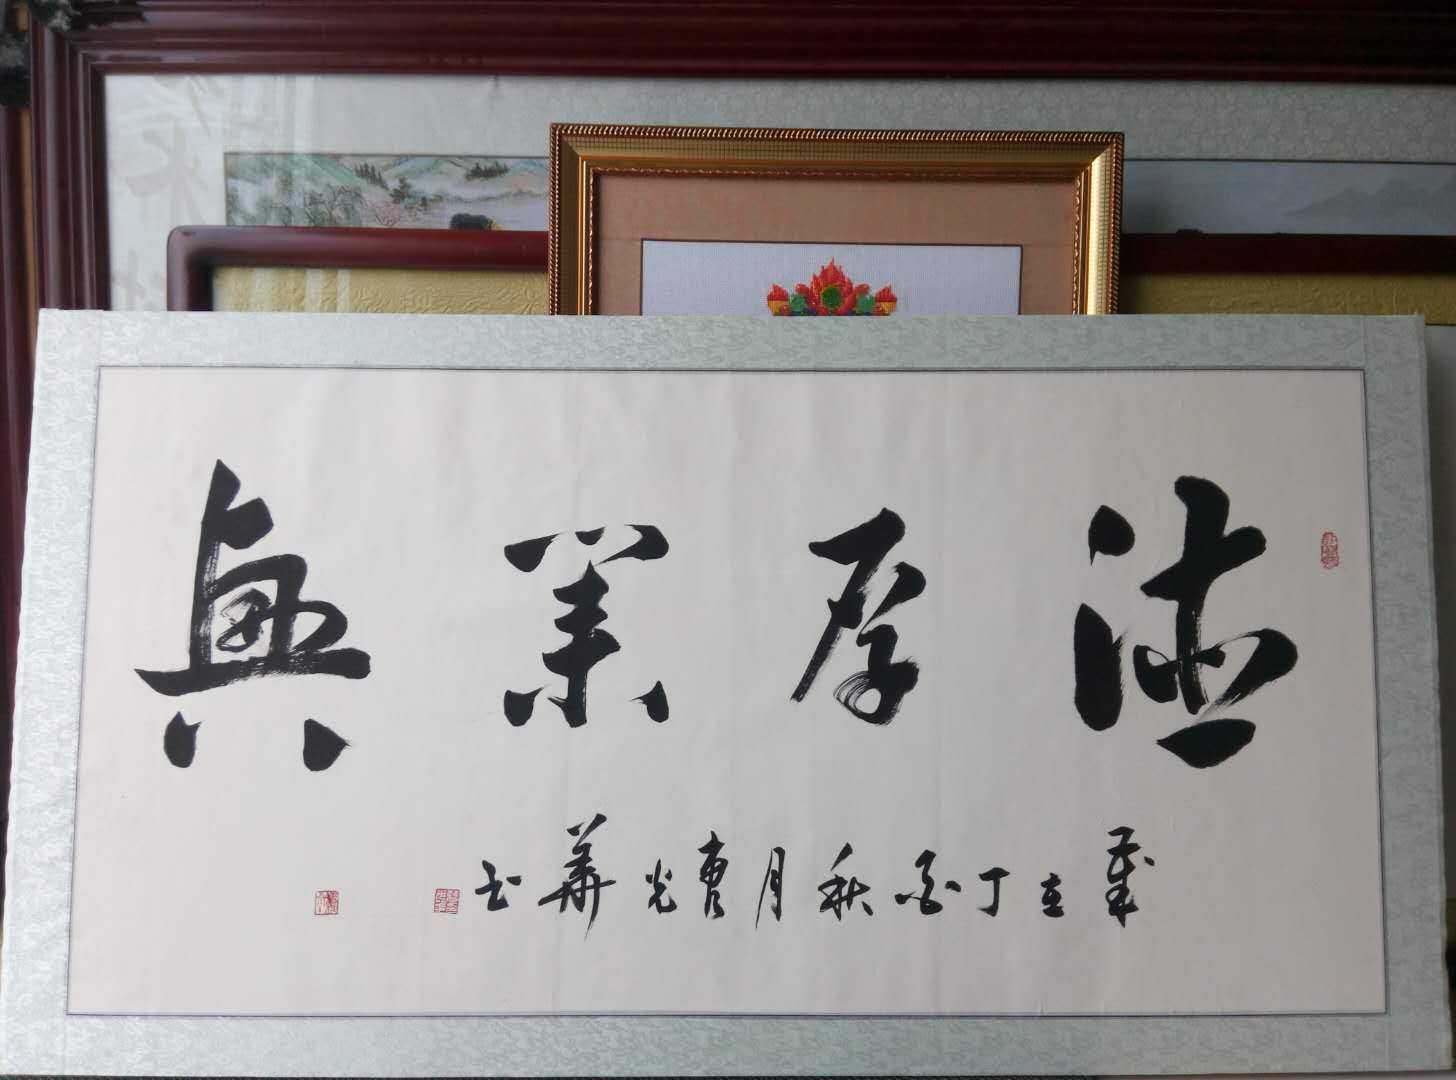 德厚業興
歲在丁酉秋月曹光華书